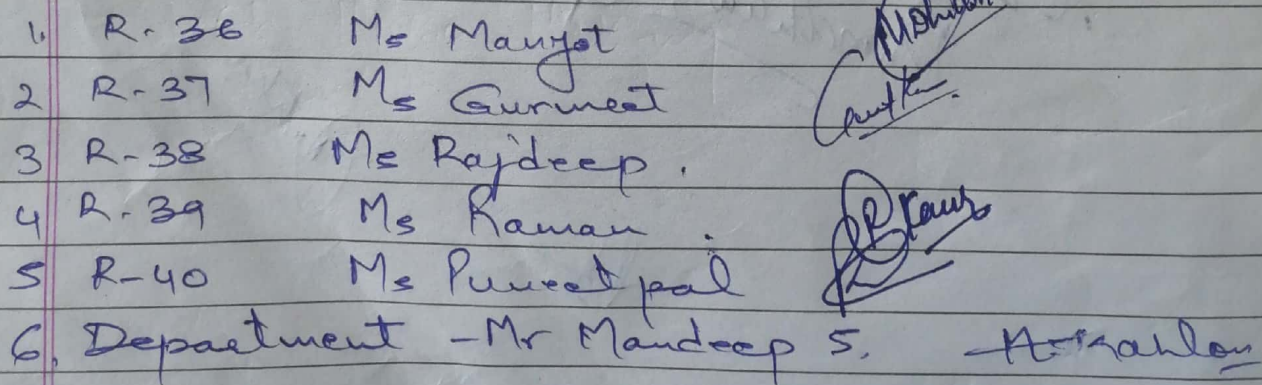 1. R. 36 Ms Manjot
2 R-37 Ms Gurmeet
3 R-38 Ms Rajdeep.
4 R. 39 Ms Raman.
5 R-40 Ms Puneetpal
6. Department - Mr Mandeep S. Kahlon